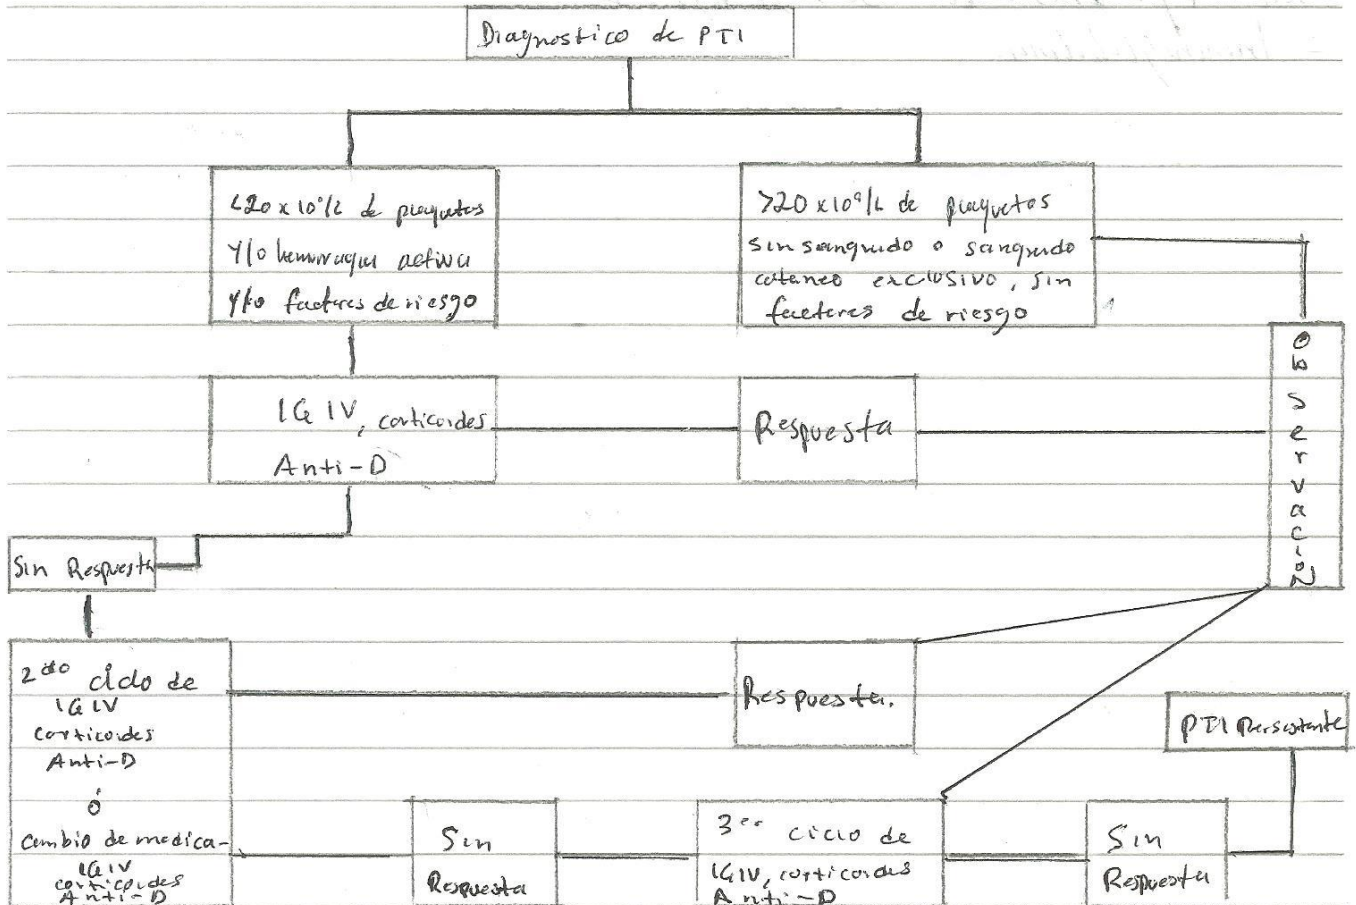 Diagnostico de PTI
<20 x 10⁹/L de plaquetas
Y/o hemorragia activa
Y/o factores de riesgo
>20 x 10⁹/L de plaquetas
sin sangrado o sangrado
cutaneo exclusivo, sin
factores de riesgo
IG IV, corticoides
Anti-D
Respuesta
Observación
Sin Respuesta
2do ciclo de
IG IV
corticoides
Anti-D
ó
cambio de medica-
IG IV
corticoides
Anti-D
Respuesta.
PTI Persistente
Sin
Respuesta
3er ciclo de
IG IV, corticoides
Anti-D
Sin
Respuesta